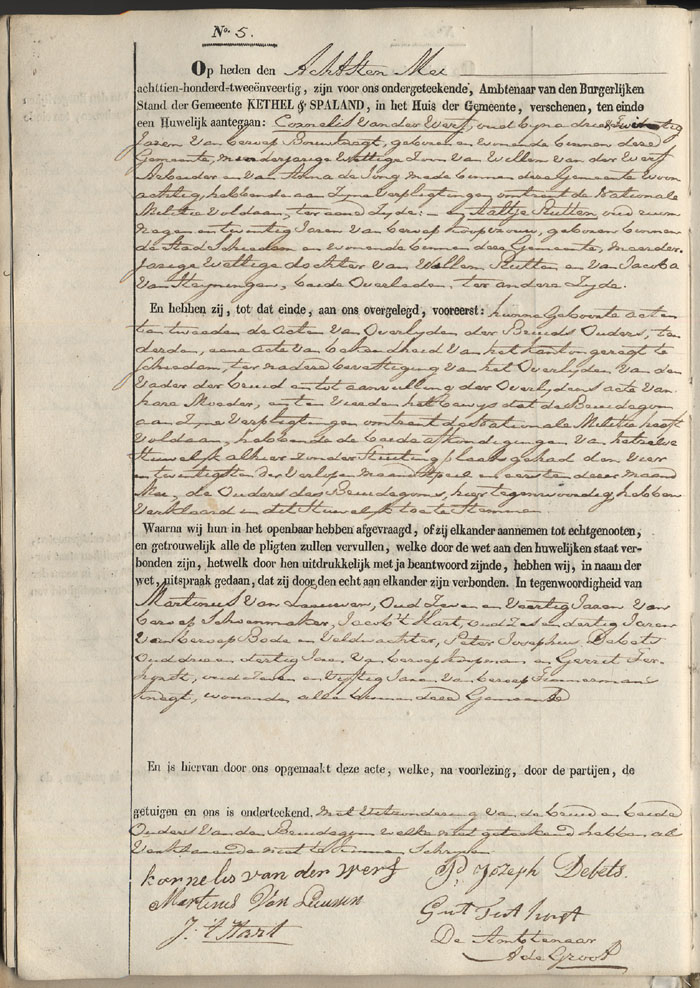 No. 5.
Op heden den Achtsten Mei
achttien-honderd-tweeënveertig, zijn voor ons ondergeteekende, Ambtenaar van den Burgerlijken
Stand der Gemeente KETHEL & SPALAND, in het Huis der Gemeente, verschenen, ten einde
een Huwelijk aantegaan: Cornelis van der Werf, oud byna drie & twintig
Jaren van beroep Bouwknegt, geboren en wonende binnen deze
Gemeente, minderjarige Wettige Zoon van Willem van der Werf
Arbeider en van Anna de Jong mede binnen deze Gemeente woon
achtig, hebbende aan zyne verpligtingen omtrent de Nationale
Militie voldaan, ter eenre zyde: en Aaltje Rutten oud ruim
negen en twintig Jaren van beroep , geboren binnen
de Stad Schiedam en wonende binnen deze Gemeente, meerder-
jarige Wettige dochter van Willem Rutten en van Jacoba
van Heyningen, beide Overleden, ter andere zyde.
En hebben zij, tot dat einde, aan ons overgelegd, vooreerst: hunne Geboorte acten
ten tweeden de acten van Overlyden der Bruids Ouders, ten
derden, eene acte van bekendheid van het kantongeregt te
Schiedam, ter nadere bevestiging van het Overlyden van den
Vader der bruid en tot aanvulling der Overlydens acte van
hare Moeder, en ten Vierden het bewys dat de Bruidegom
aan zyne Verpligtingen omtrent de Nationale Militie heeft
voldaan, hebbende de beide afkondigingen van hetzelve
Huwelijk alhier zonder Stuiting plaats gehad den Vier
en twintigsten der Verlopen maand April en eersten dezer maand
Mei, de Ouders des Bruidegoms, hier tegenwoordig, hebben
verklaard in dit Huwelijk toe te Stemmen
Waarna wij hun in het openbaar hebben afgevraagd, of zij elkander aannemen tot echtgenooten,
en getrouwelijk alle de pligten zullen vervullen, welke door de wet aan den huwelijken staat ver-
bonden zijn, hetwelk door hen uitdrukkelijk met ja beantwoord zijnde, hebben wij, in naam der
wet, uitspraak gedaan, dat zij door den echt aan elkander zijn verbonden. In tegenwoordigheid van
Martinus van Leeuwen, Oud Zeven en Veertig Jaren van
beroep Schoenmaker, Jacob 't Hart, oud Zes en dertig Jaren
van beroep Bode en Veldwachter, Peter Josephus Debets
Oud drie en dertig Jaren van beroep Koopman en Gerrit Ter-
horst, oud Zeven en Vyftig Jaren van beroep Timmermans
knegt, wonende alle binnen deze Gemeente
En is hiervan door ons opgemaakt deze acte, welke, na voorlezing, door de partijen, de
getuigen en ons is onderteekend, met uitzondering van de bruid en beide
Ouders van den Bruidegom welke niet geteekend hebben als
verklarende niet te kunnen Schryven
kornelis van der werf Pr Jozeph Debets.
Martinus Van Leeuwen
Grt Terhorst
J: 't Hart
De Ambtenaar
A de Groot